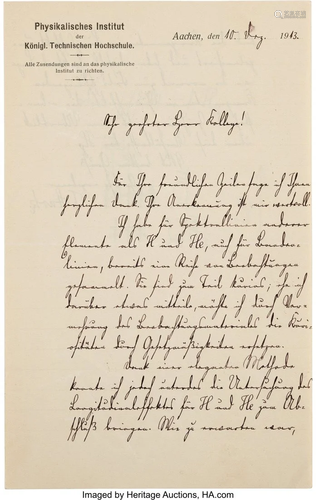 Physikalisches Institut
der
Königl. Technischen Hochschule.
Alle Zusendungen sind an das physikalische
Institut zu richten.
Aachen, den 10. Dez. 1913.
Sehr geehrter Herr Kollege!
Für Ihre freundlichen Zeilen sage ich Ihnen
herzlichen Dank. Ihre Anerkennung ist mir wertvoll.
Ich habe für Spektrallinien anderer
Elemente als H und He, auch für Banden-
linien, bereits eine Reihe von Beobachtungen
gesammelt. Sie sind zum Teil kurios; ehe ich
darüber etwas mitteile, möchte ich durch Ver-
mehrung des Beobachtungsmaterials die Kurio-
sitäten durch Gesetzmäßigkeiten ersetzen.
Dank einer eleganten Methode
konnte ich jedoch unterdes die Untersuchung des
Longitudinaleffektes für H und He zum Ab-
schluß bringen. Wie zu erwarten war,
Imaged by Heritage Auctions, HA.com